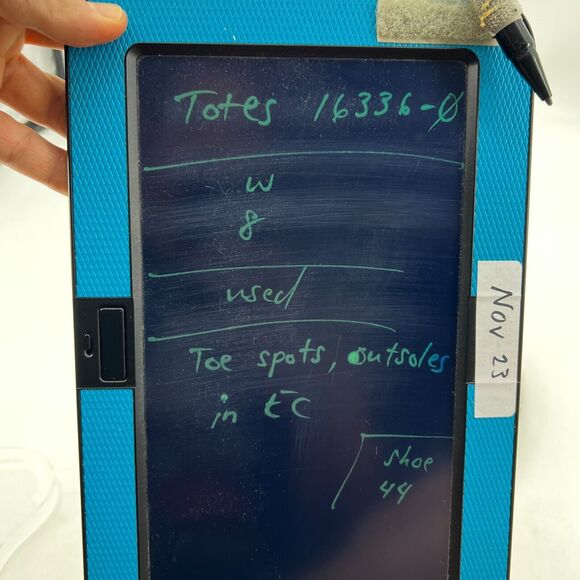 Totes 16336-0
W
8
used
Toe spots, outsoles
in EC
shoe
44
Nov 23